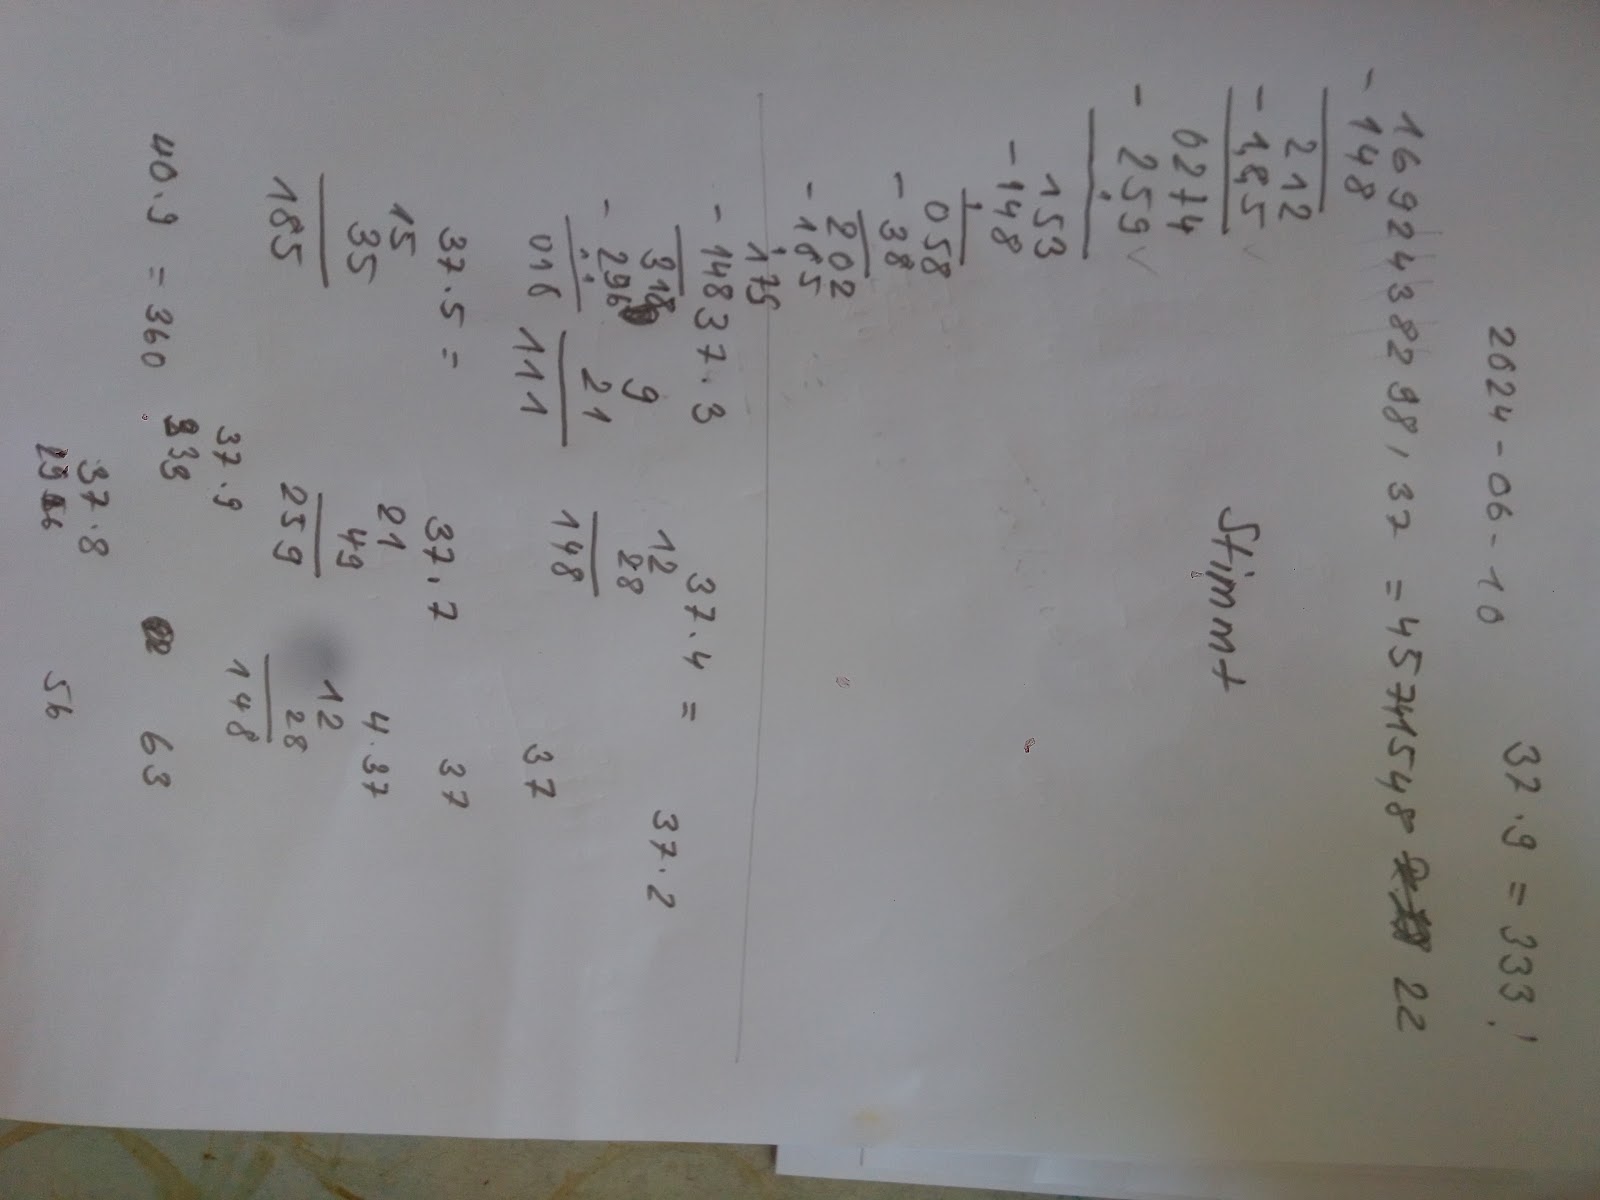 2024-06-10 37.9 = 333!
16924382998,37 = 4574154822
- 148
212
- 185
0274
- 259
Stimmt
153
- 148
058
- 38
202
- 165
175
- 148 37.3 37.4 = 37.2
318 9 12
- 296 21 28
016 111 148 37
37.5 = 37.7 37
15 21 4.37
35 49 12
185 259 28
37.9 148
333
40.9 = 360 63
37.8
56